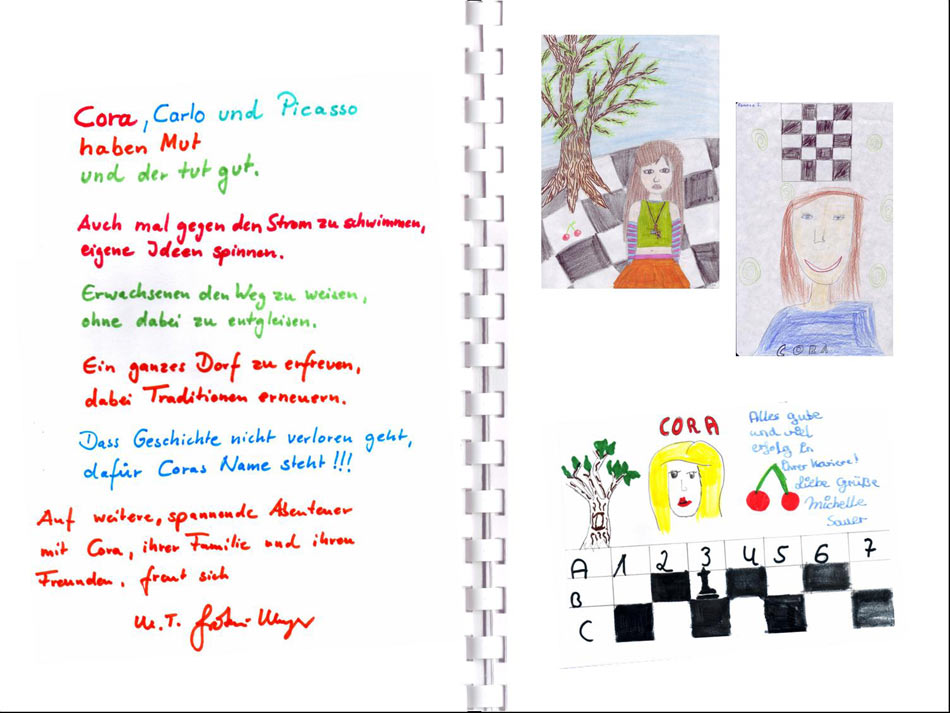 Cora, Carlo und Picasso
haben Mut
und der tut gut.
Auch mal gegen den Strom zu schwimmen,
eigene Ideen spinnen.
Erwachsenen den Weg zu weisen,
ohne dabei zu entgleisen.
Ein ganzes Dorf zu erfreuen,
dabei Traditionen erneuern.
Dass Geschichte nicht verloren geht,
dafür Coras Name steht!!!
Auf weitere, spannende Abenteuer
mit Cora, ihrer Familie und ihren
Freunden, freut sich
M.T.
CORA
CORA
Alles gute
und viel
erfolg in
Ihrer Kariere!
Liebe Grüße
Michelle
Sauer
A 1 2 3 4 5 6 7
B
C